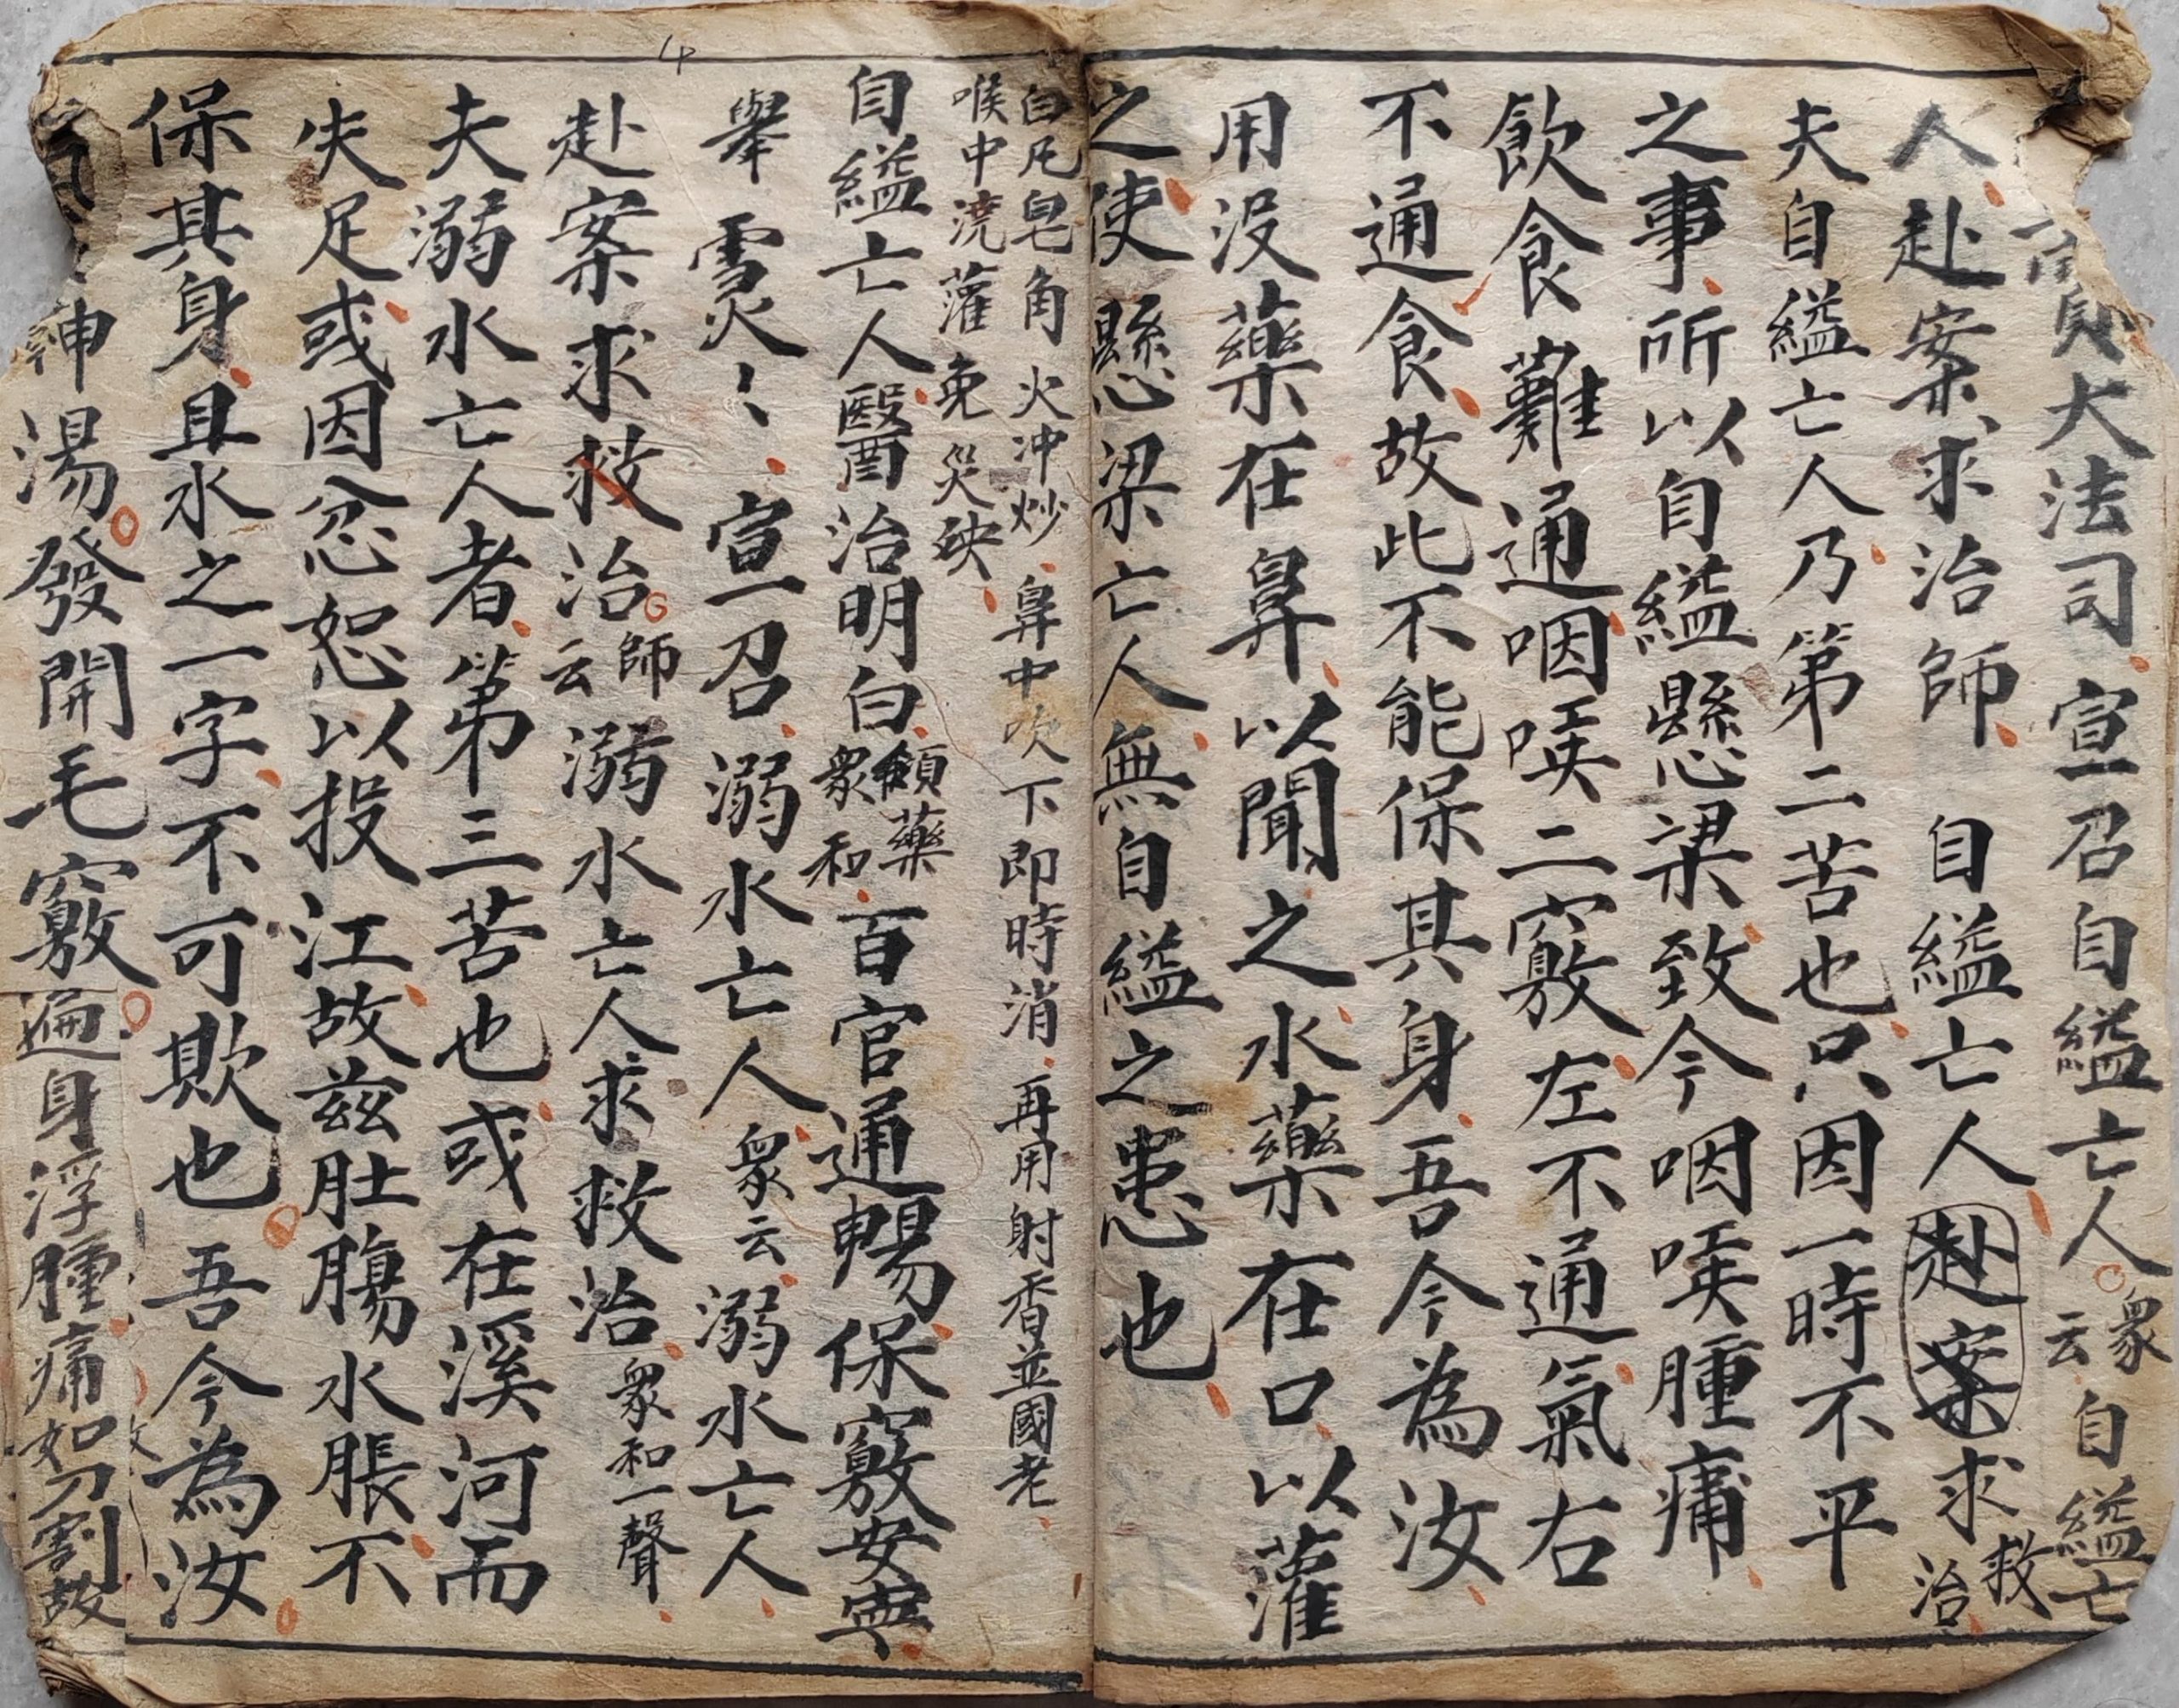 大法司宣召自縊亡人眾云自縊亡
人赴案求治師 自縊亡人赴案求救治
夫自縊亡人乃第二苦也只因一時不平
之事所以自縊懸梁致今咽㗋腫痛
飲食難通咽㗋二竅左不通氣右
不通食故此不能保其身吾今為汝
用没藥在鼻以聞之水藥在口以灌
之使懸梁亡人無自縊之患也
白凡皂角火冲炒鼻中吹下即時消再用射香並國老
喉中澆灌免災殃
自縊亡人醫治明白頌藥眾和百官通暢保竅安寧
舉 靈〻宣召溺水亡人眾云溺水亡人
赴案求救治師云溺水亡人求救治眾和一聲
夫溺水亡人者第三苦也或在溪河而
失足或因忿恕以投江故兹肚腸水脹不
保其身且水之一字不可欺也吾今為汝
神湯發開毛竅遍身浮腫痛如刀割故